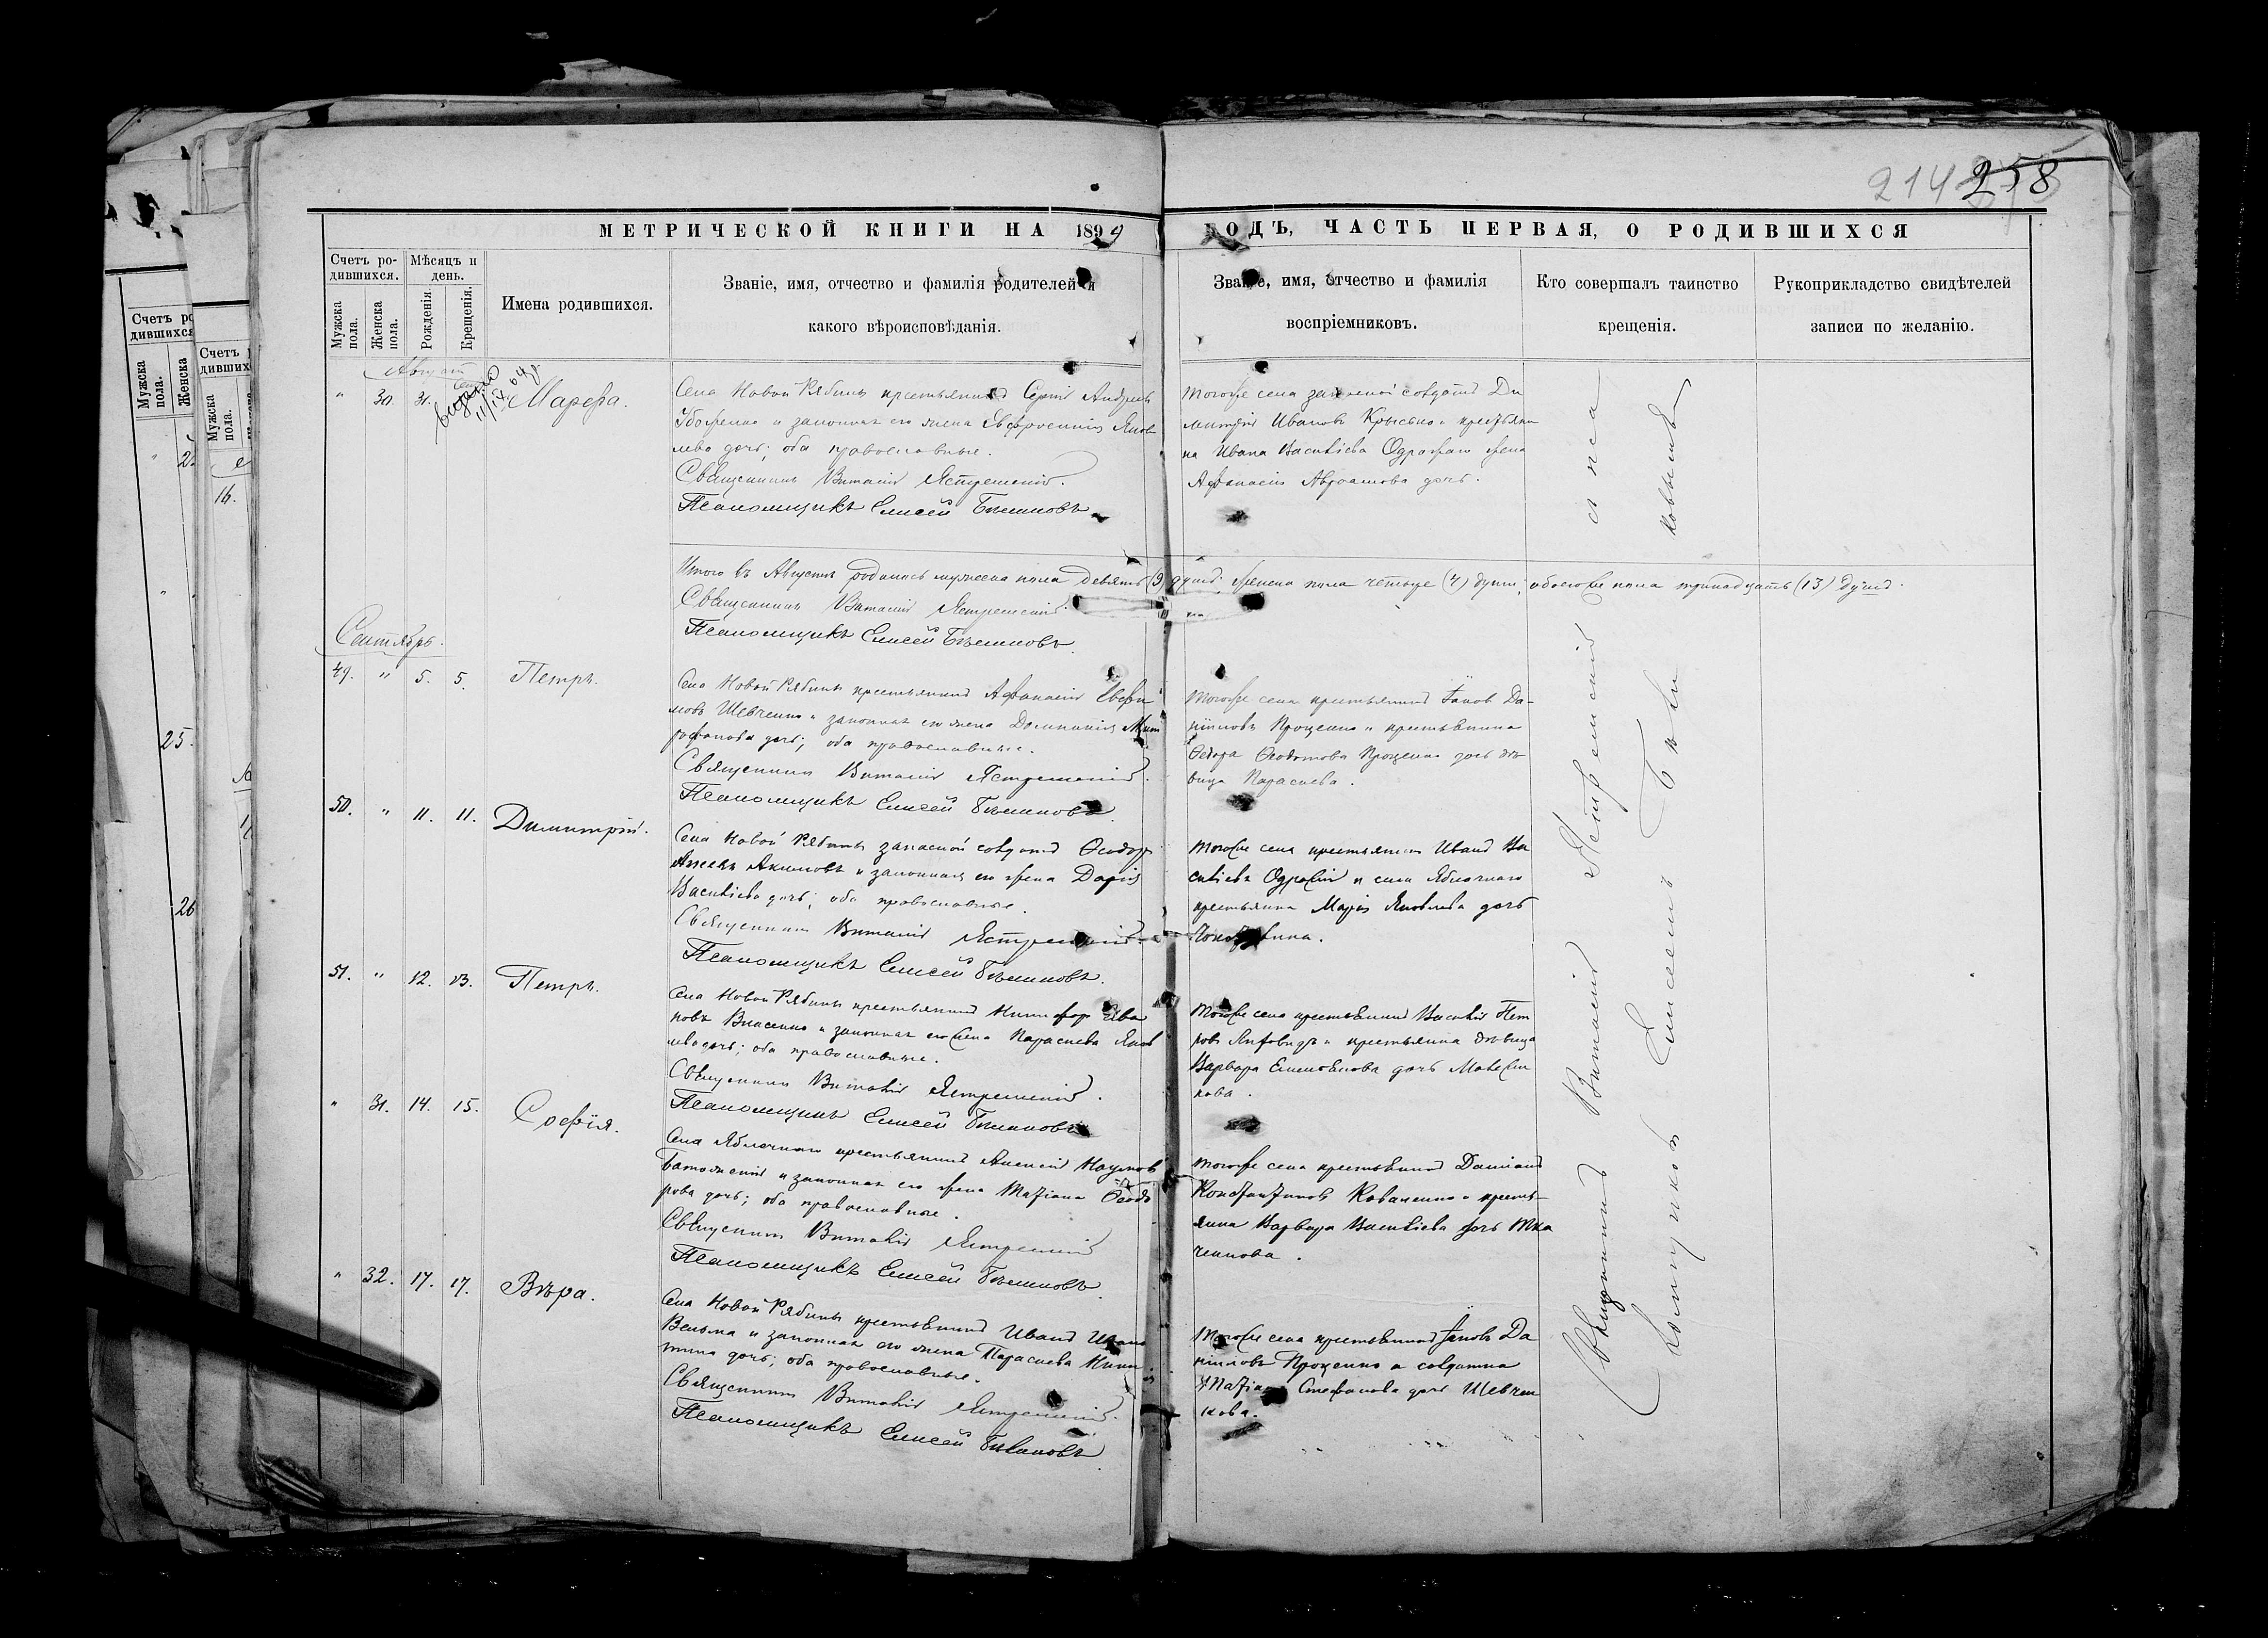 214 258
МЕТРИЧЕСКОЙ КНИГИ НА 1899 ГОДЪ, ЧАСТЬ ПЕРВАЯ, О РОДИВШИХСЯ
Счетъ родившихся.
Мужска пола.
Женска пола.
Мѣсяцъ и день.
Рожденія.
Крещенія.
Имена родившихся.
Званіе, имя, отчество и фамилія родителей и
какого вѣроисповѣданія.
Званіе, имя, отчество и фамилія
воспріемниковъ.
Кто совершалъ таинство
крещенія.
Рукоприкладство свидѣтелей
записи по желанію.
Августъ
" 30. 31.
Марѳа.
Села Новой Рябины крестьянинъ Сергій Андреевъ
и законная его жена Евфросинія Яков
лева дочь; оба православные.
Священникъ Виталій Ястремскій.
Псаломщикъ Елисей Бѣликовъ.
Тогоже села запасной солдатъ Ди
митрій Ивановъ Крысько и крестьяни
на Ивана Василіева жена
Афанасія дочь.
Итого въ Августѣ родилось мужеска пола девять (9) душъ, женска пола четыре (4) души, обоего же пола тринадцать (13) душъ.
Священникъ Виталій Ястремскій.
Псаломщикъ Елисей Бѣликовъ.
Сентябрь.
49. " 5. 5.
Петръ.
Села Новой Рябины крестьянинъ Афанасій Евфи
мовъ Шевченко и законная его жена Домникія Мит
рофанова дочь; оба православные.
Священникъ Виталій Ястремскій.
Псаломщикъ Елисей Бѣликовъ.
Тогоже села крестьянинъ Іаковъ Да-
ніиловъ Проценко и крестьянина
Ѳедора Ѳеодотова Проценко дочь дѣ
вица Параскева.
50. " 11. 11.
Димитрій.
Села Новой Рябины запасной солдатъ Ѳеодоръ
Акимовъ и законная его жена Дарія
Василіева дочь; оба православные.
Священникъ Виталій Ястремскій.
Псаломщикъ Елисей Бѣликовъ.
Тогоже села крестьянинъ Иванъ Ва
силіевъ и села Яблочнаго
крестьянка Марія Яковлева дочь
51. " 12. 13.
Петръ.
Села Новой Рябины крестьянинъ Никифоръ Ива
новъ Власенко и законная его жена Параскева Яков
лева дочь; оба православные.
Священникъ Виталій Ястремскій.
Псаломщикъ Елисей Бѣликовъ.
Тогоже села крестьянинъ Василій Пет
ровъ и крестьянка дѣвица
Варвара дочь
кова.
" 31. 14. 15.
Софія.
Села Яблочнаго крестьянинъ Алексій Наумовъ
и законная его жена Татіана Ѳеодо
рова дочь; оба православные.
Священникъ Виталій Ястремскій
Псаломщикъ Елисей Бѣликовъ.
Тогоже села крестьянинъ Даміанъ
Константиновъ Коваленко и кресть-
янка Варвара Василіева дочь Тка
ченкова.
" 32. 17. 17.
Вѣра.
Села Новой Рябины крестьянинъ Иванъ
Вельма и законная его жена Параскева Ники
тина дочь; оба православные.
Священникъ Виталій Ястремскій.
Псаломщикъ Елисей Бѣликовъ.
Тогоже села крестьянинъ Іаковъ Да
ніиловъ Проценко и солдатка
Татіана Стефанова дочь Шевчен
кова.
Священникъ Виталій Ястремскій
Елисей